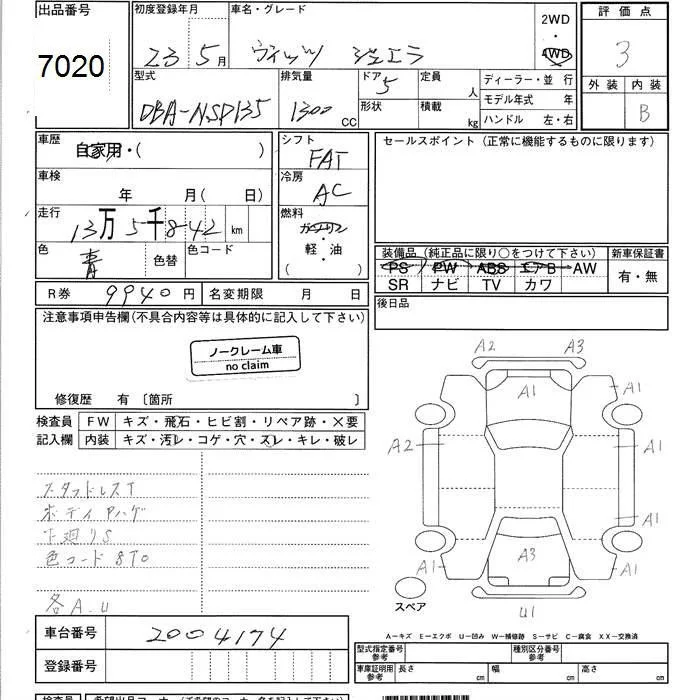 出品番号 初度登録年月 車名・グレード 2WD
7020 23年5月 ヴィッツ ジュエラ 4WD
評価点
3
外装 内装
B
型式 排気量 ドア 定員 ディーラー・並行
DBA-NSP135 1300CC 5 人 モデル年式 年
形状 積載 kg ハンドル 左・右
車歴 自家用・( )
シフト FAT
セールスポイント(正常に機能するものに限ります)
車検 年 月(日)
冷房 AC
走行 13万5千842km
燃料 ガソリン・軽・油
( )
色 青 色替 色コード
装備品(純正品に限り○をつけて下さい) 新車保証書
PS PW ABS エアB AW 有・無
SR ナビ TV カワ
R券 9940円 名変期限 月 日
後日品
注意事項申告欄(不具合内容等は具体的に記入して下さい)
ノークレーム車
no claim
修復歴 有〔箇所 〕
検査員 FW キズ・飛石・ヒビ割・リペア跡・X要
記入欄 内装 キズ・汚レ・コゲ・穴・スレ・キレ・破レ
スタッドレスT
ボディPハゲ
下廻りS
色コード 8T0
各A.U
A2 A3
A1 A1
A2 A1
A1
A3
A1 A1
U1
スペア
A-キズ E-エクボ U-凹み W-補修跡 S-サビ C-腐食 XX-交換済
車台番号 2004174
型式指定番号 参考 種別区分番号 参考
登録番号
車庫証明用 参考 長さ cm 幅 cm 高さ cm